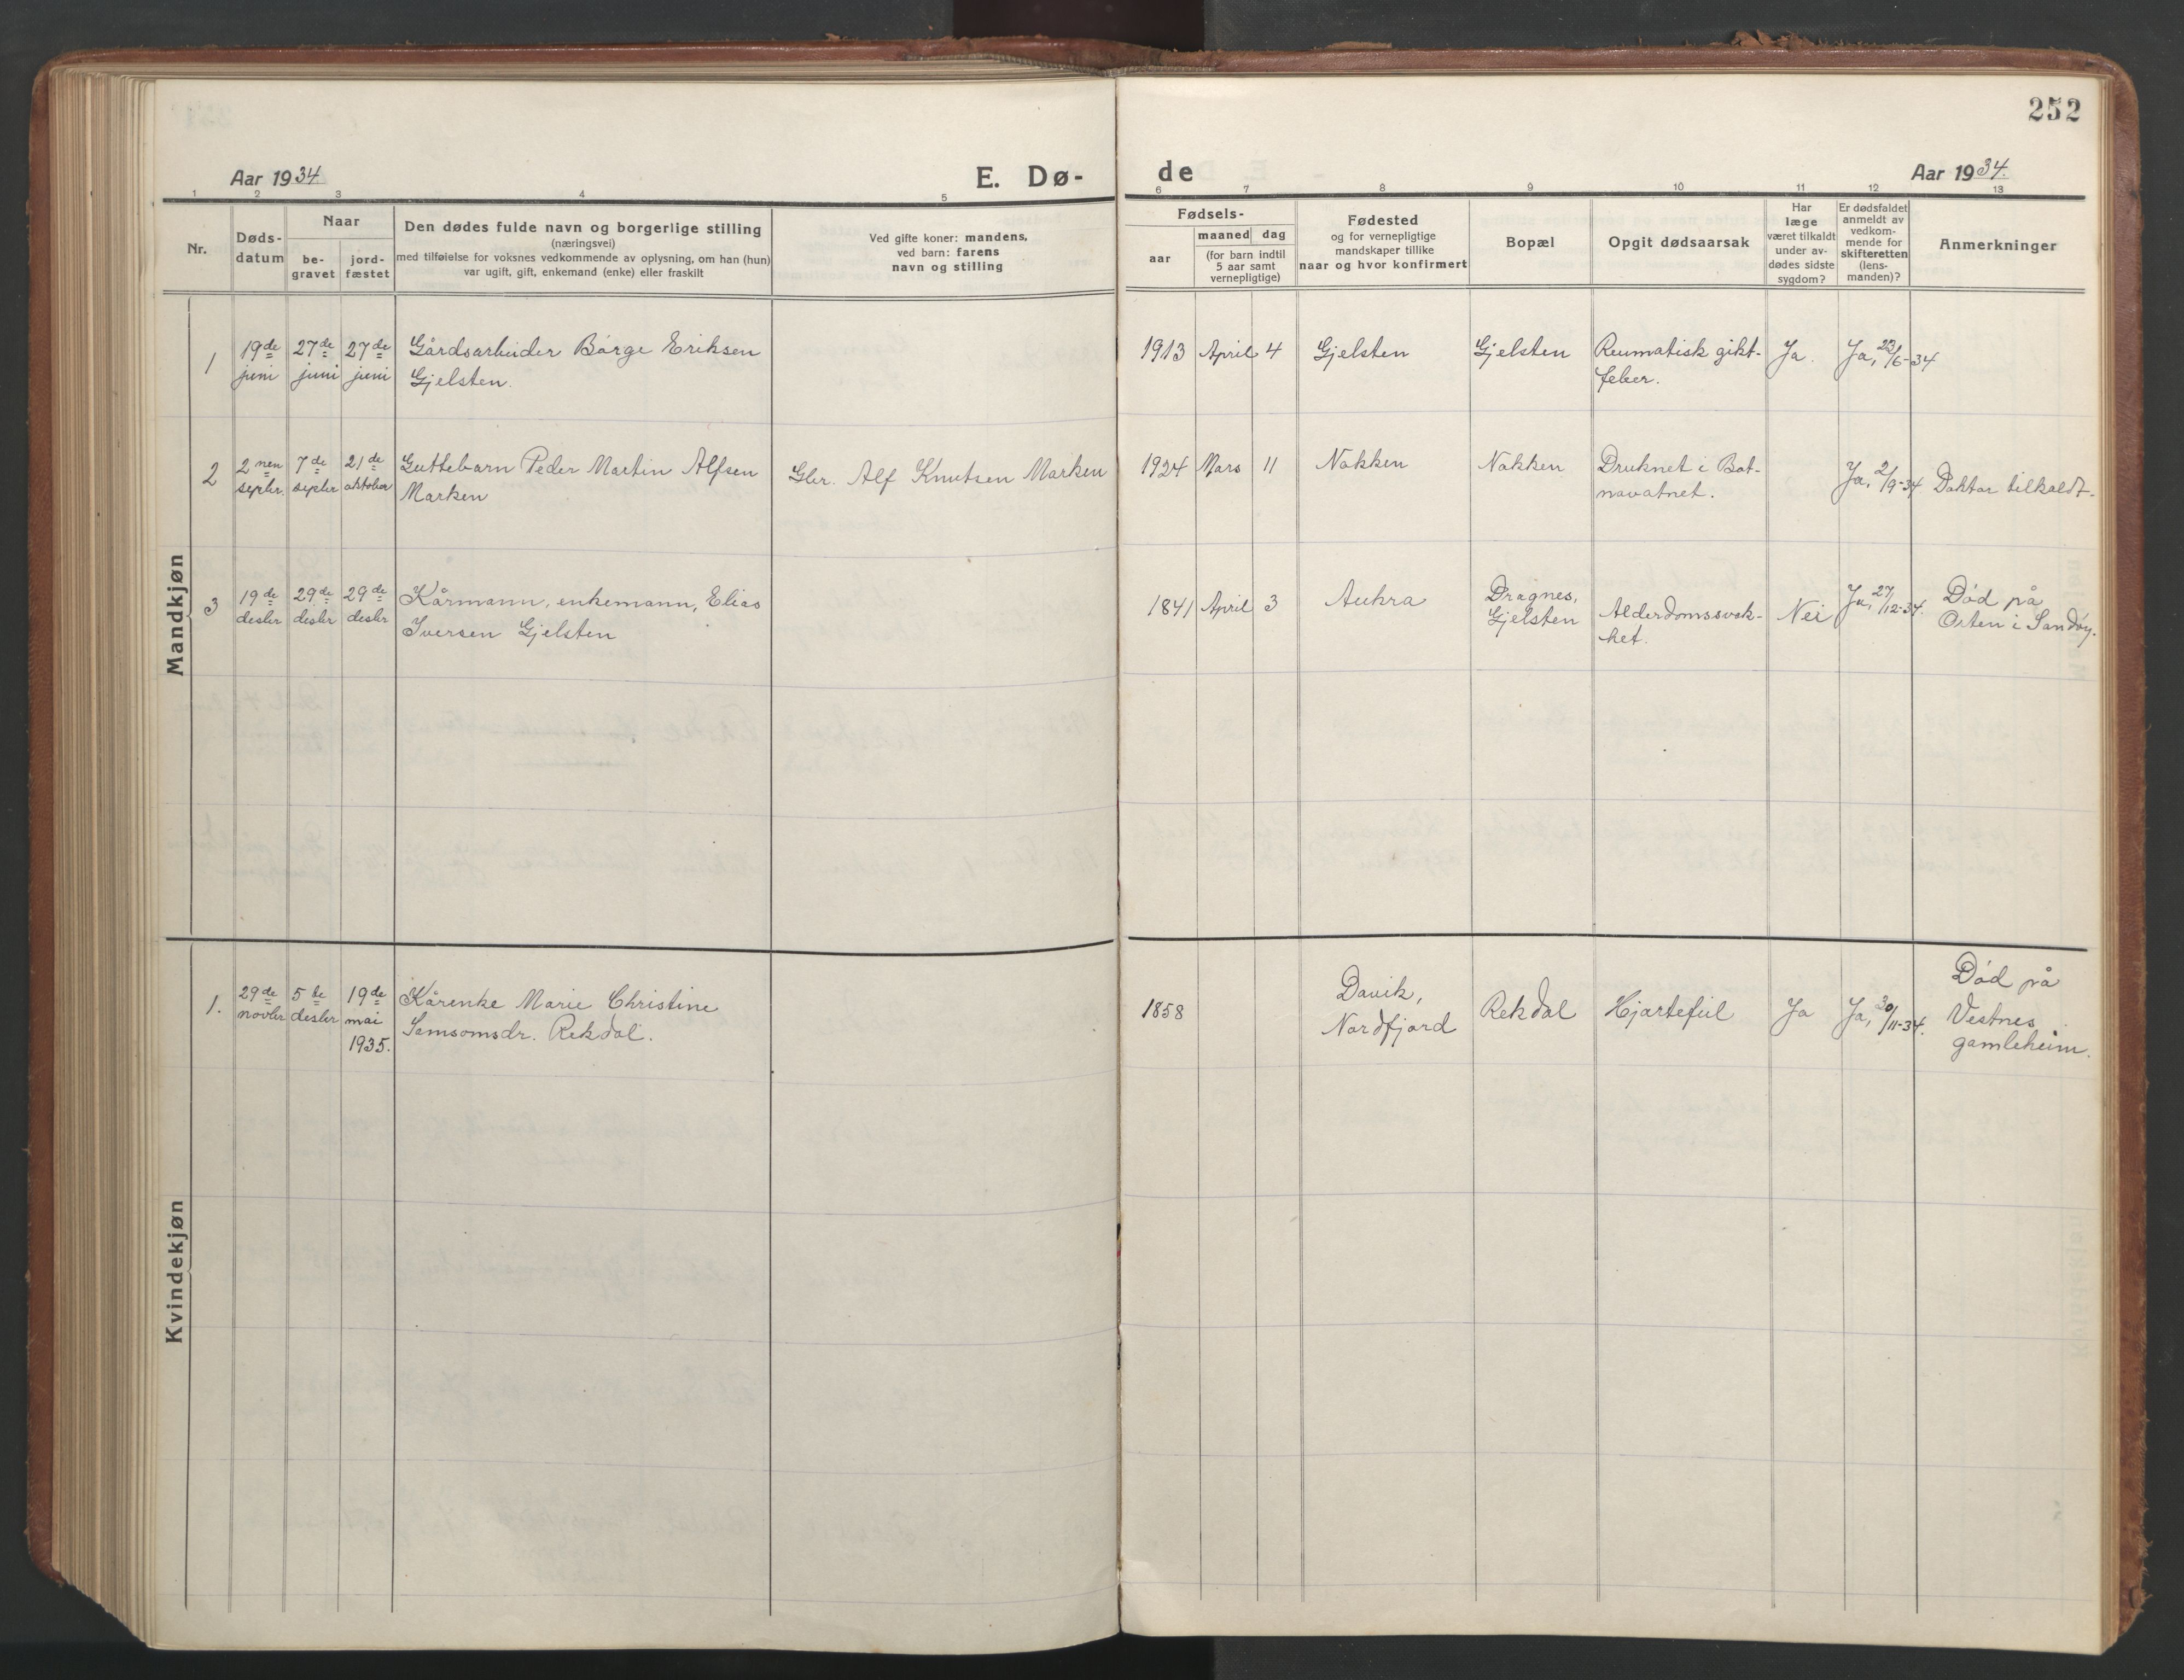 252
Aar 1934
E. Dø-
de
Aar 1934.
1 2 3 4 5 6 7 8 9 10 11 12 13
Nr.
Døds-
datum
Naar
be-
gravet
jord-
fæstet
Den dødes fulde navn og borgerlige stilling
(næringsvei)
med tilføielse for voksnes vedkommende av oplysning, om han (hun)
var ugift, gift, enkemand (enke) eller fraskilt
Ved gifte koner: mandens,
ved barn: farens
navn og stilling
Fødsels-
aar
maaned dag
(for barn indtil
5 aar samt
vernepligtige)
Fødested
og for vernepligtige
mandskaper tillike
naar og hvor konfirmert
Bopæl
Opgit dødsaarsak
Har
læge
været tilkaldt
under av-
dødes sidste
sygdom?
Er dødsfaldet
anmeldt av
vedkom-
mende for
skifteretten
(lens-
manden)?
Anmerkninger
Mandkjøn
1 19de 27de 27de Gårdsarbeider Börge Eriksen 1913 April 4 Gjelsten Gjelsten Reumatisk gikt- Ja. Ja, 23/6-34
juni juni juni Gjelsten. feber.
2 2nen 7de 21de Guttebarn Peder Martin Alfsen Gbr. Alf Knutsen Marken 1924 Mars 11 Nakken Nakken Druknet i Bot- Ja, 2/9-34 Doktor tilkaldt.
septbr. septbr oktober Marken navatnet.
3 19de 29de 29de Kårmann, enkemann, Elias 1841 April 3 Aukra Dragnes, Alderdomssvak- Nei Ja, 27/12-34. Död på
desbr desbr desbr Iversen Gjelsten Gjelsten het. Orten i Sandöy.
Kvindekjøn
1. 29de 5te 19de Kårenke Marie Christine 1858 Davik, Rekdal Hjartefeil Ja Ja, 30/11-34. Död på
novbr desbr mai Samsomsdr. Rekdal. Nordfjord Vestnes
1935. gamleheim.